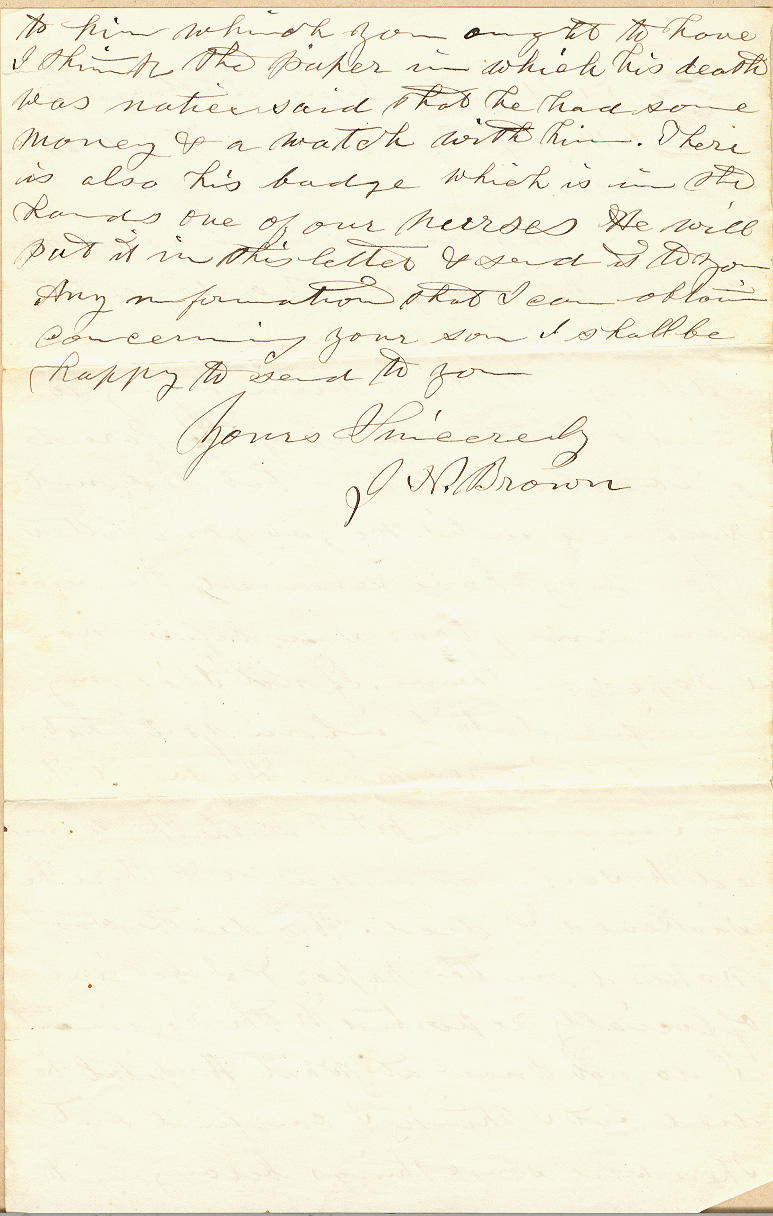 to him which you ought to have
I think the paper in which his death
was notice said that he had some
money & a watch with him. There
is also his badge which is in the
hands one of our nurses He will
put it in this letter & send it to you
Any information that I can obtain
concerning your son I shall be
happy to send to you
Yours Sincerely
J N. Brown